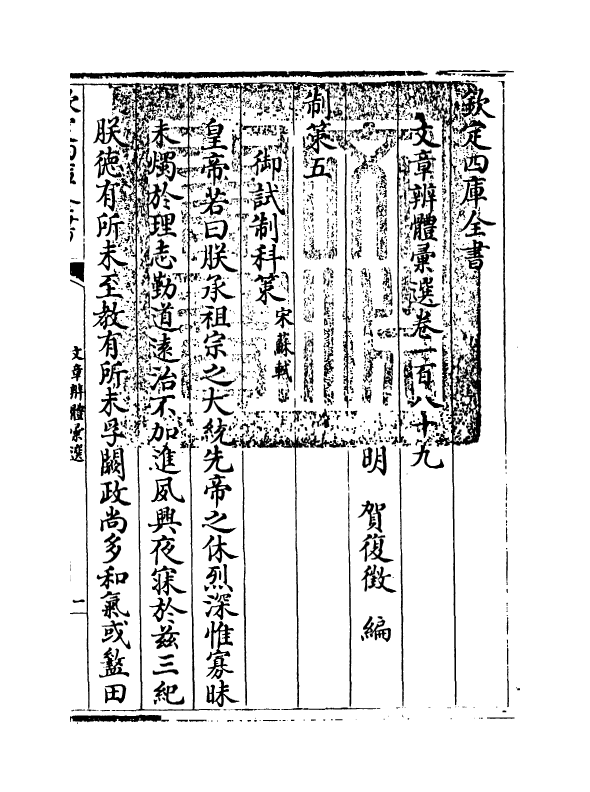 欽定四庫全書
文章辨體彚選卷一百八十九
明 賀復徵 編
制策五
御試制科策 宋蘇軾
皇帝若曰朕承祖宗之大統先帝之休烈深惟寡昧
未燭於理志勤道遠治不加進夙興夜寐於兹三紀
朕徳有所未至教有所未孚闕政尚多和氣或盭田
文章辨體彚選
一